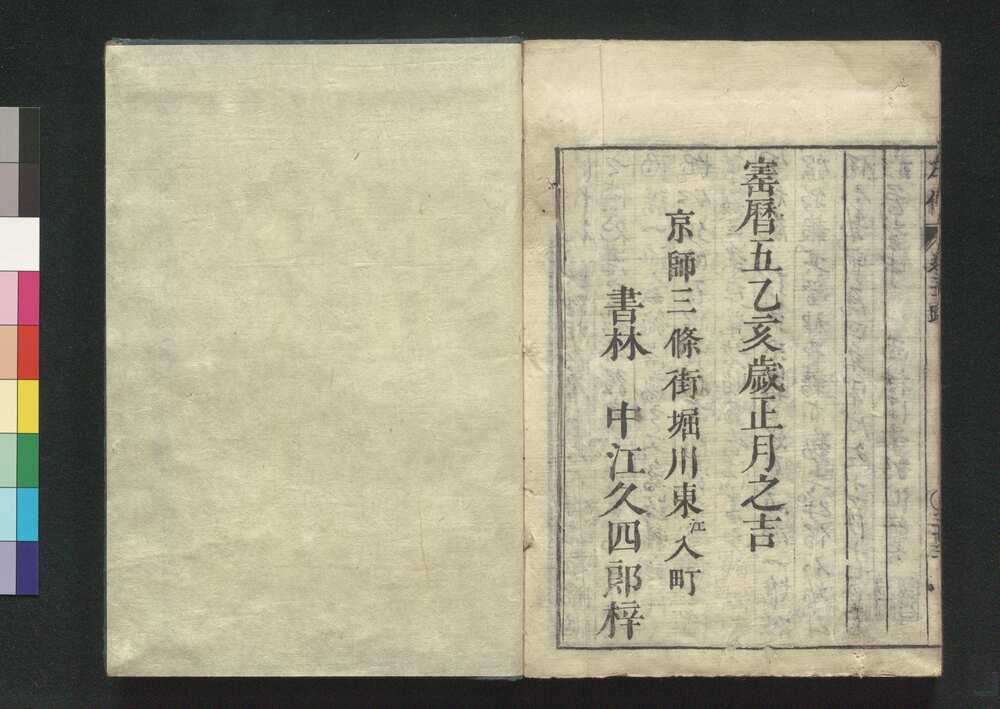 寚曆五乙亥歲正月之吉
京師三條街堀川東江入町
書林　中江久四郎梓